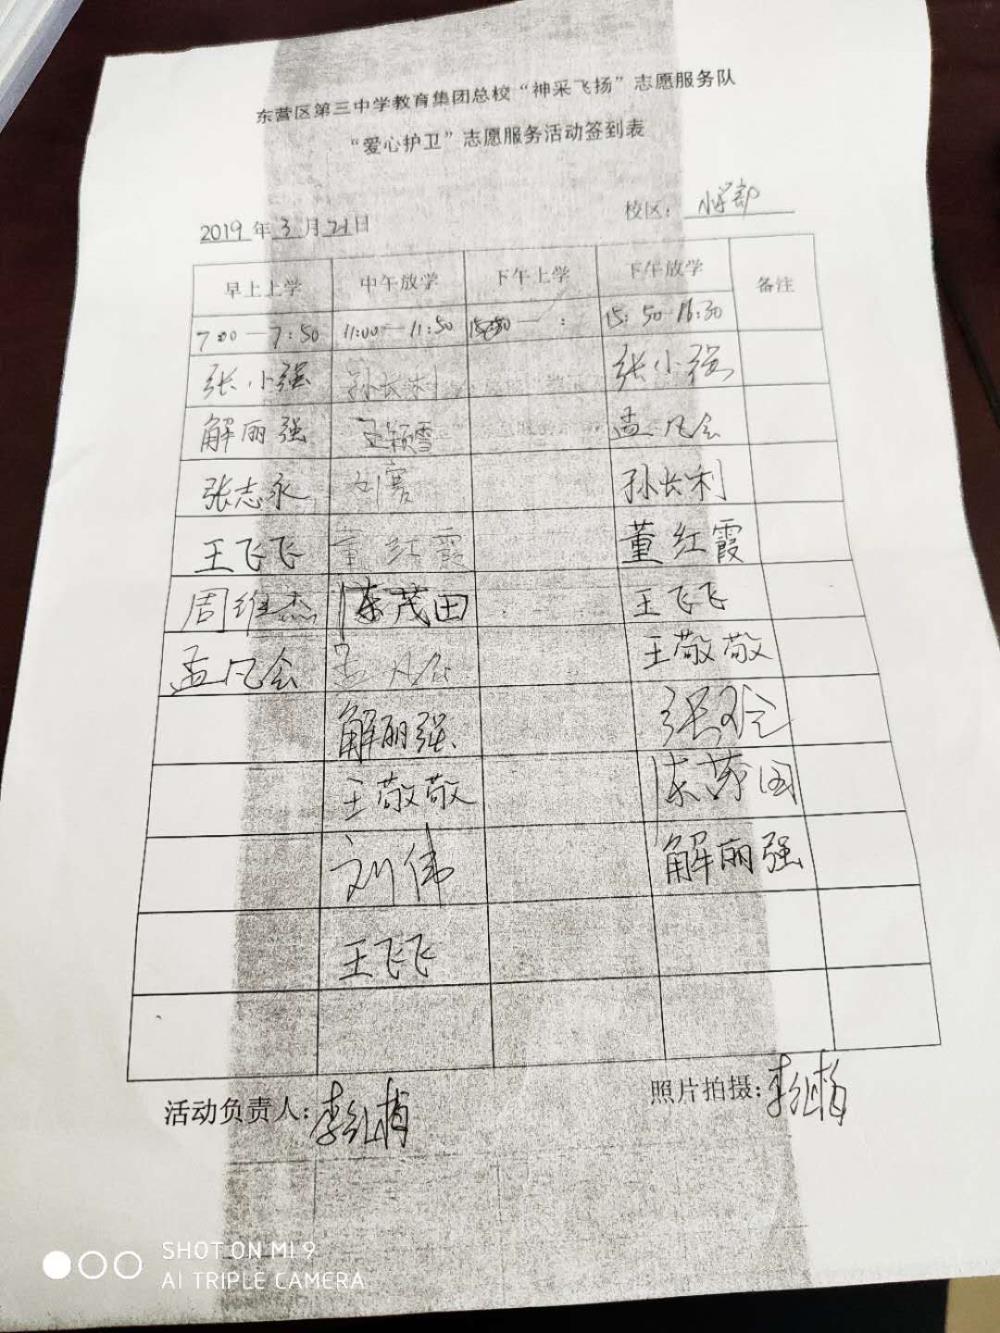 东营区第三中学教育集团总校“神采飞扬”志愿服务队
“爱心护卫”志愿服务活动签到表
2019年3月21日 校区：小学部
早上上学 中午放学 下午上学 下午放学 备注
7:00—7:50 11:00—11:50 — : 15:50-16:30
张小强 孙长利 张小强
解丽强 王颖雪 孟凡会
张志永 刘骞 孙长利
王飞飞 董红霞 董红霞
周维杰 陈茂田 王飞飞
孟凡会 孟凡会 王敬敬
解丽强
王敬敬
刘伟 解丽强
王飞飞
活动负责人: 照片拍摄:
SHOT ON MI 9
AI TRIPLE CAMERA